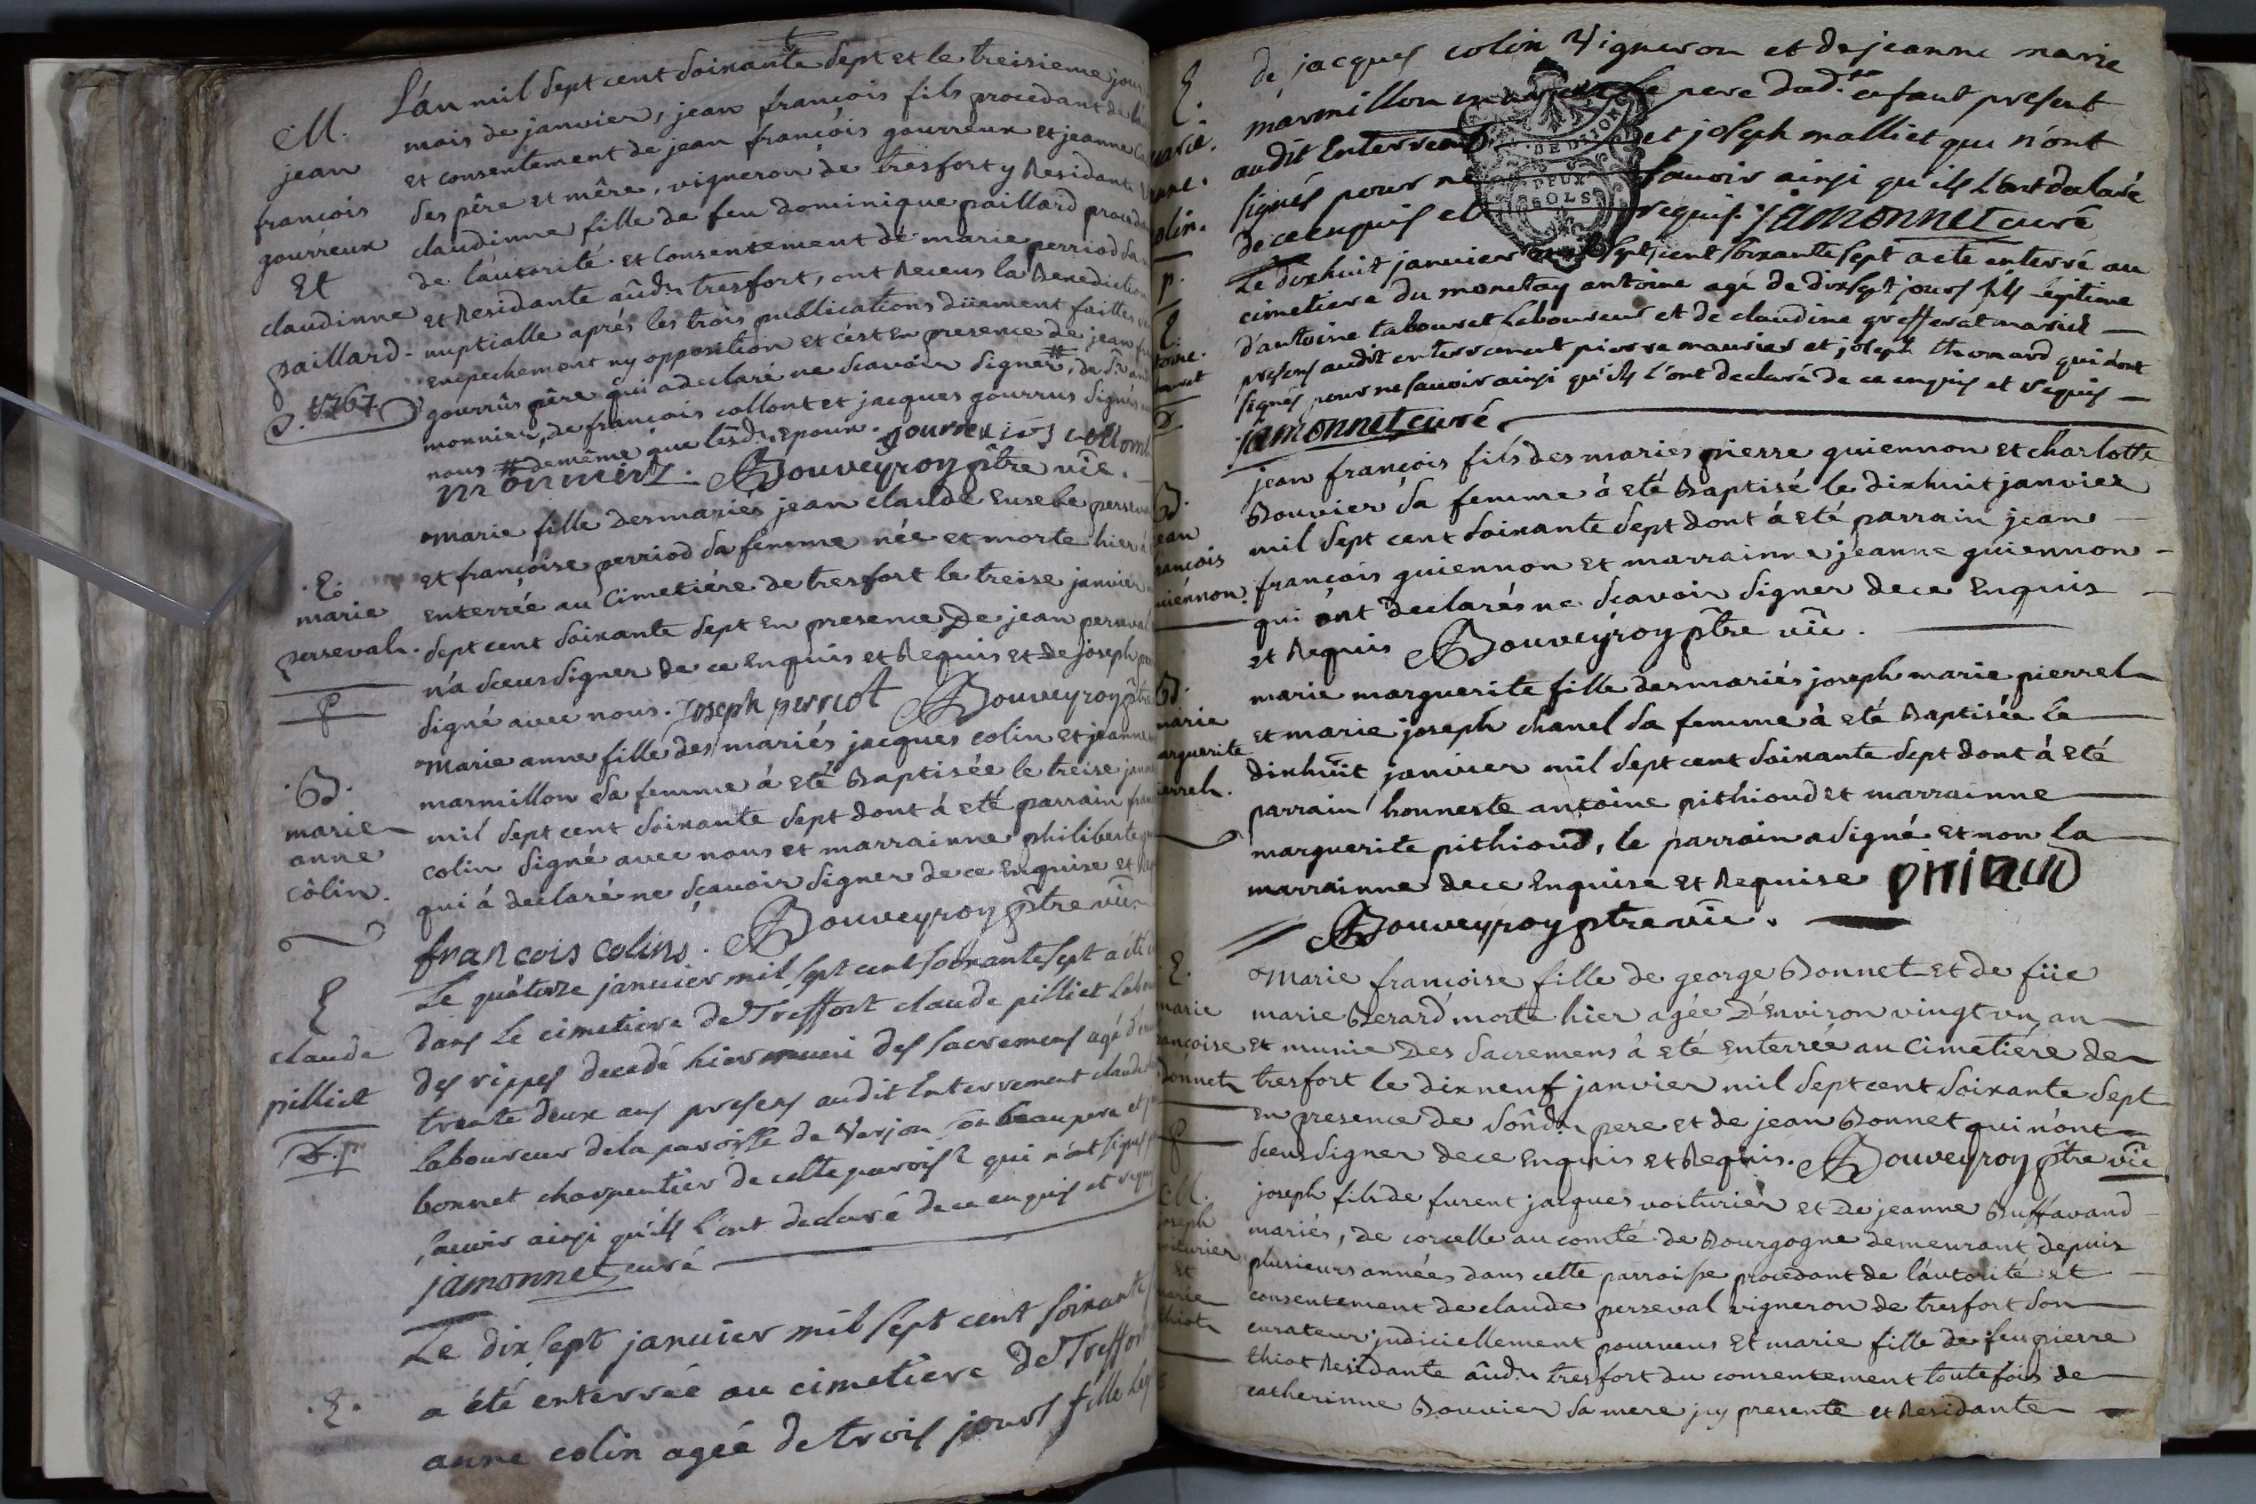 L'an mil sept cent soixante sept et le treisieme jour
M.
mois de janvier, jean françois fils procedant de
jean
et consentement de jean françois gourreux et jeanne
françois
ses père et mêre, vigneron de tresfort y Residant
gourreux
claudinne fille de feu dominique paillard
Et
de l'autorité et Consentement de marie perriod sa
claudinne
et Residante audt tresfort, ont Receus la Benediction
paillard.
nuptialle aprés les trois publications düement faittes
empechement ny opposition et c'est En presence de jean
1767
gourrûs pêre qui a declaré ne sçavoir signer,# de Sr
monnier, de françois collont et jacques gourrus signés
nous # demême que lesdt Epoux. gourreux collom
monnier. Bouveyron ptre vic.
marie fille des mariés jean claude Eusebe perseval
et françoise perriod sa femme née et morte hier à
.E.
marie
perseval.
Enterrée au Cimetiére de tresfort le treise janvier
sept cent soixante sept En presence De jean perseval
n'a sceu signer de ce Enquis et Requis et de joseph
signé avec nous. Joseph perriot Bouveyron ptre
Marie anne fille des mariés jacques colin et jeanne
.B.
marie
anne
côlin.
marmillon sa femme à eté Baptisée le treise
mil sept cent soixante sept dont à eté parrain
colin signé avec nous et marrainne philiberte
qui à declaré ne sçavoir signer de ce Enquise et
françois colins. Bouveyron ptre vic
E
claude
pilliet
D.p
Le quatorze janvier mil sept cent soixante sept a été
dans Le cimetiere de Treffort claude pilliet
des rippes decedé hier muni des sacremens agé
trente deux ans presens audit Enterrement claude
Laboureur de la paroisse de Verjon son beaupere et
bonnet charpentier de cette paroisse qui n'ont signés
sauoir ainsi qu'ils l'ont declaré de ce enquis et
jamonnet curé
Le dix sept janvier mil sept cent soixante
.E.
a été enterrée au cimetiere de Treffort
anne colin ageé de trois jours fille
de jacques colin Vigneron et de jeanne marie
marmillon Le pere dudt enfant present
audit Enterrement et joseph malliet qui n'ont
signés pour ne sauoir ainsi qu'ils l'ont declaré
de ce enquis et requis. jamonnet curé
E.
DEUX
SOLS
Le dixhuit janvier mil sept cent soixante sept a été enterré au
cimetiere du monetay antoine agé de dixsept jours fils
d'antoine tabouret Laboureur et de claudine grefferat mariés
presens audit enterrement pierre maurier et joseph thomard qui n'ont
signés pour ne sauoir ainsi qu'ils l'ont declaré de ce enquis et requis
jamonnet curé
jean françois fils des mariés pierre guiennon et charlotte
Bouvier sa femme à eté Baptisé le dixhuit janvier
mil sept cent soixante sept dont à eté parrain jean
françois guiennon et marrainne jeanne guiennon
qui ont declarés ne sçavoir signer de ce Enquis
et Requis Bouveyron ptre vic.
marie marguerite fille des mariés joseph marie pierrel
et marie joseph chanel sa femme à eté Baptisée le
dixhuit janvier mil sept cent soixante sept dont à eté
parrain honneste antoine pithioud et marrainne
marguerite pithioud, le parrain a signé et non la
marrainne de ce Enquise et Requise pitioud
Bouveyron ptre vic.
E.
Marie françoise fille de george Bonnet et de füe
marie Berard morte hier agée D'Environ vingt un an
et munie Des sacremens à eté Enterrée au Cimetiére de
tresfort le dixneuf janvier mil sept cent soixante sept
En presence de sondt pere et de jean Bonnet qui n'ont
sceu signer de ce Enquis et Requis. Bouveyron ptre vic
joseph fils de furent jacques voiturier et De jeanne Buffavand
mariés, de corcelle au comté de Bourgogne demeurant depuis
plusieurs années dans cette parroisse procedant de l'autorité et
consentement de claude perseval vigneron de tresfort son
curateur judiciellement pourveus et marie fille de feu pierre
thiot Residante audt tresfort du consentement toutefois de
catherinne Bouvier sa mere jcy presente et Residante